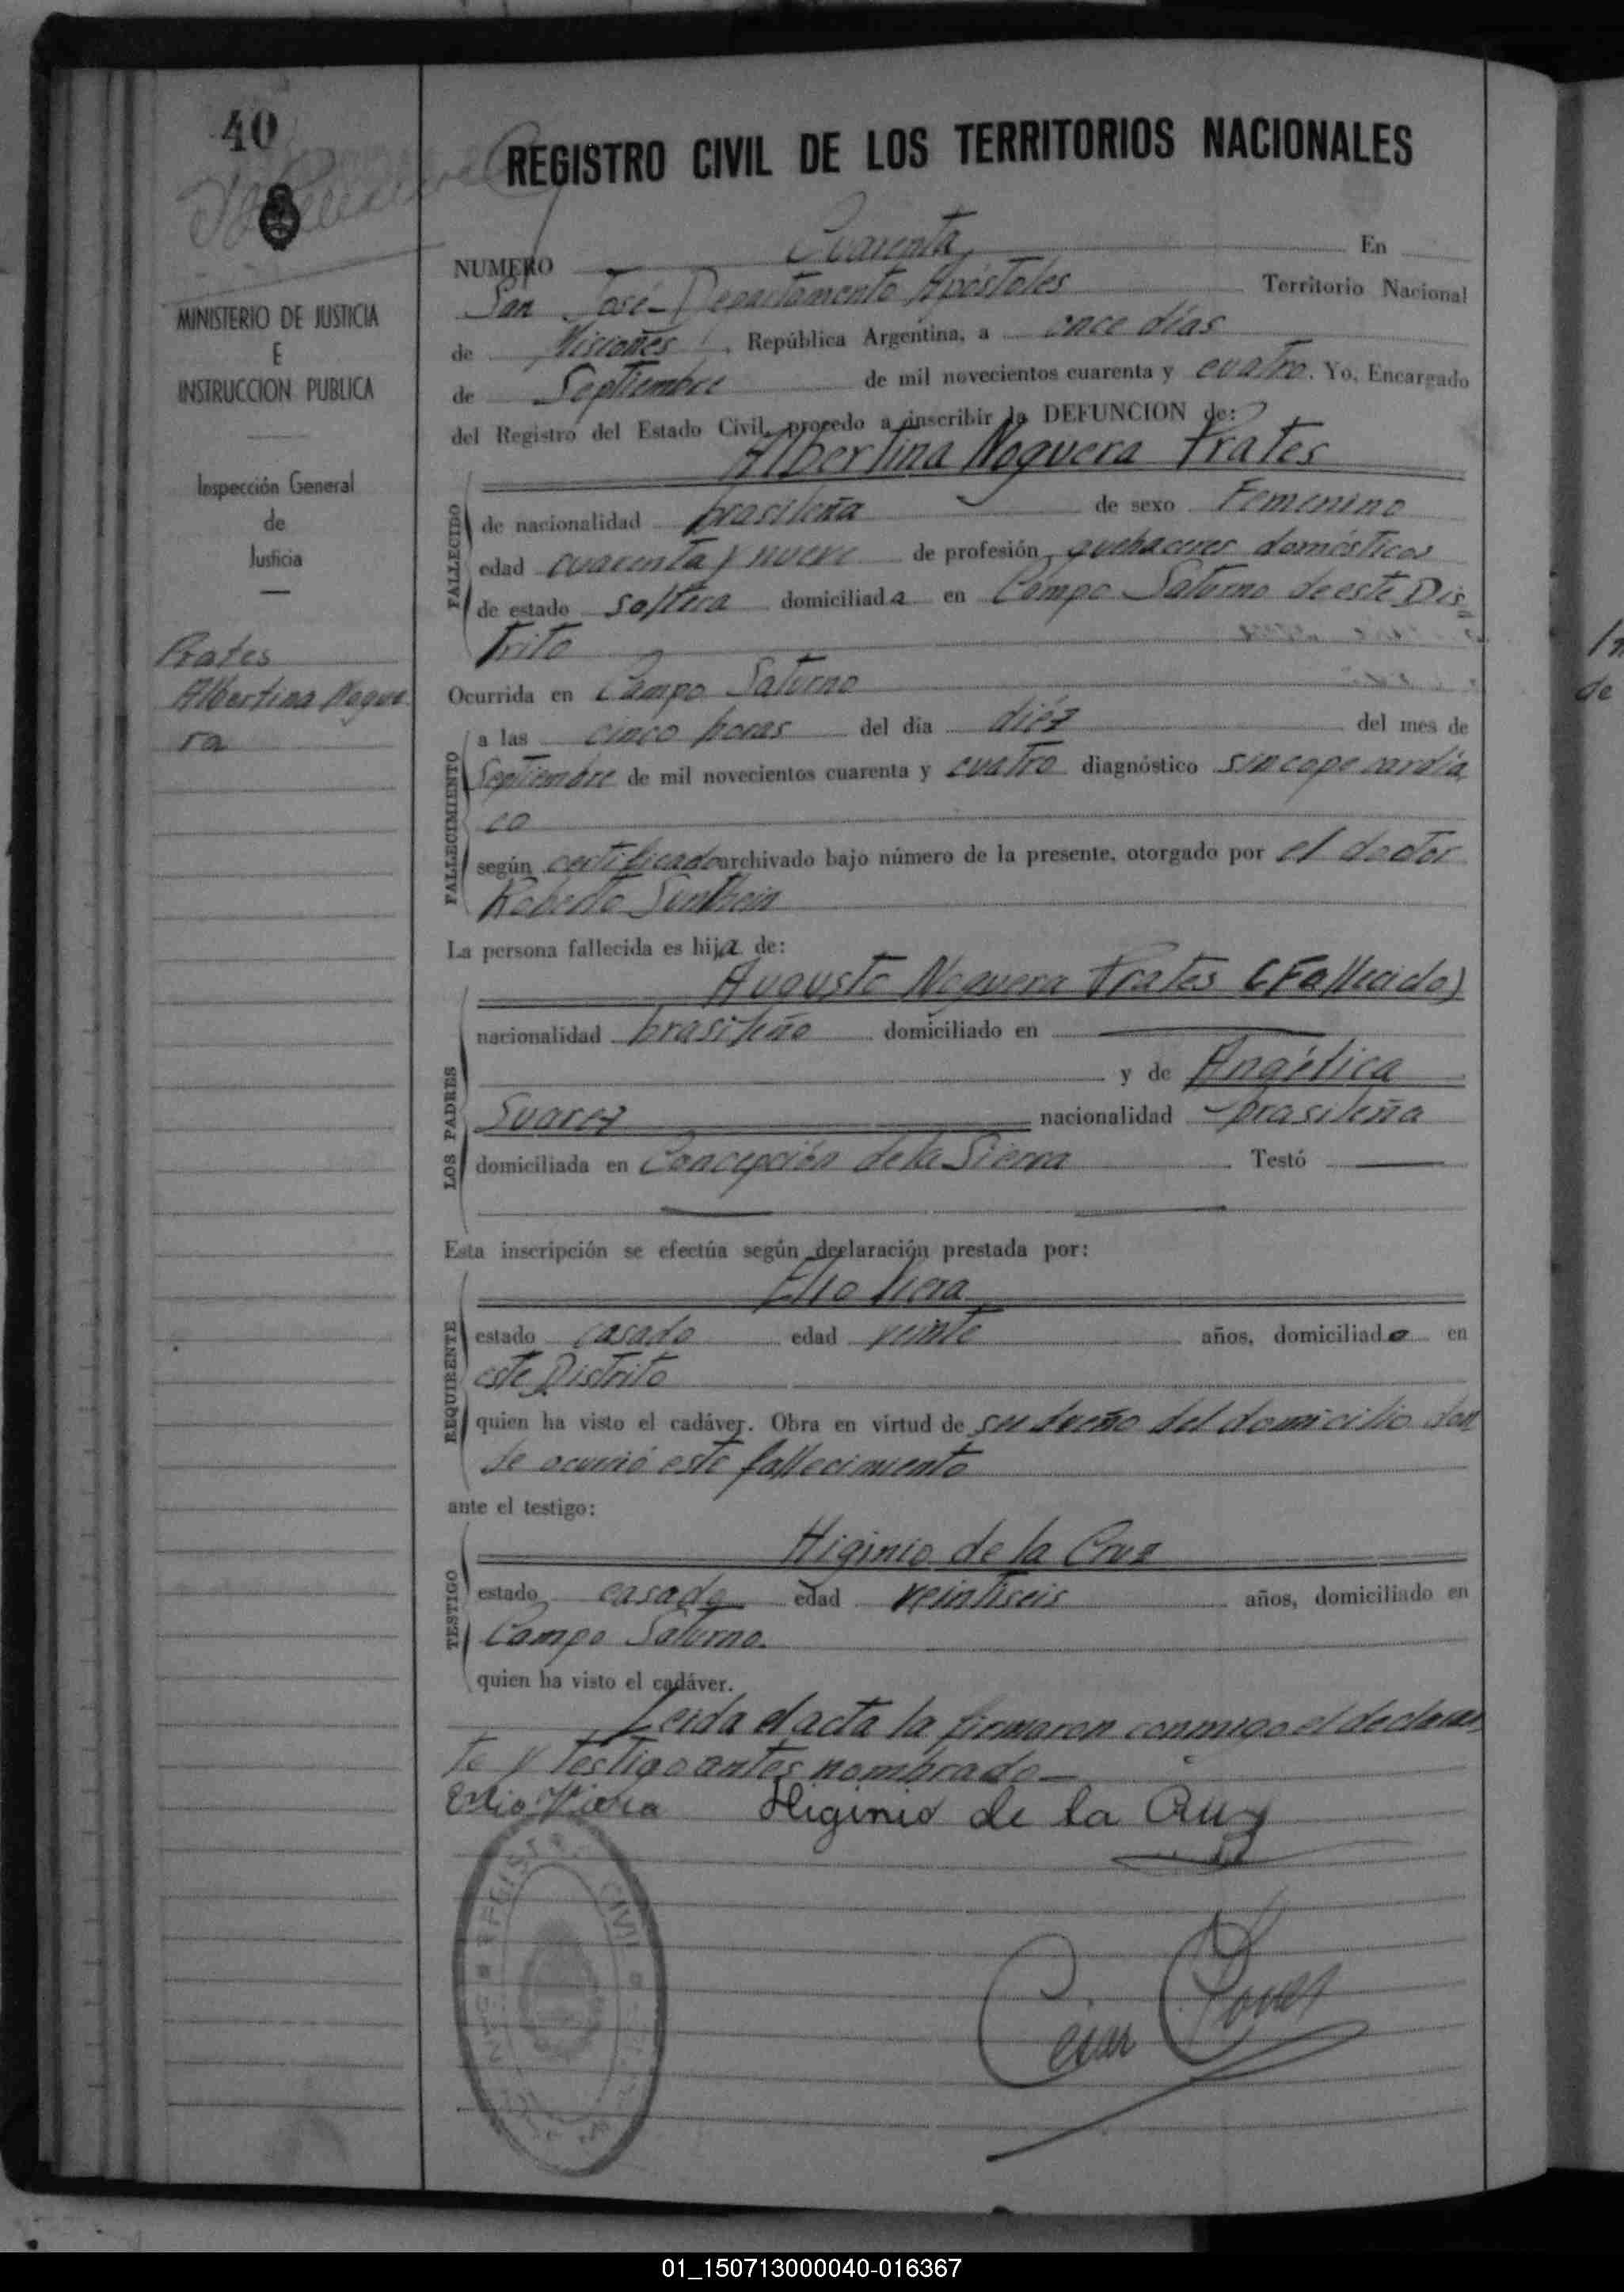 40
REGISTRO CIVIL DE LOS TERRITORIOS NACIONALES
MINISTERIO DE JUSTICIA
E
INSTRUCCION PUBLICA
Inspección General
de
Justicia
Prates
Albertina Nogue
ra
NUMERO Cuarenta En
San José - Departamento Apóstoles Territorio Nacional
de Misiones, República Argentina, a once días
de Septiembre de mil novecientos cuarenta y cuatro. Yo, Encargado
del Registro del Estado Civil, procedo a inscribir la DEFUNCION de:
Albertina Noguera Prates
FALLECIDO
de nacionalidad brasileña de sexo Femenino
edad cuarenta y nueve de profesión quehaceres domésticos
de estado soltera domiciliada en Campo Saturno de este Dis=
trito
Ocurrida en Campo Saturno
FALLECIMIENTO
a las cinco horas del día diéz del mes de
Septiembre de mil novecientos cuarenta y cuatro diagnóstico sincope cardía
co
según certificado archivado bajo número de la presente, otorgado por el doctor
Roberto
La persona fallecida es hija de:
LOS PADRES
Augusto Noguera Prates (Fallecido)
nacionalidad brasileño domiciliado en
y de Angélica
Suarez nacionalidad brasileña
domiciliada en Concepción de la Sierra Testó
Esta inscripción se efectúa según declaración prestada por:
REQUIRENTE
Elio Viera
estado casado edad veinte años, domiciliado en
este Distrito
quien ha visto el cadáver. Obra en virtud de ser dueño del domicilio don
de ocurrió este fallecimiento
ante el testigo:
TESTIGO
Higinio de la Cruz
estado casado edad veintiseis años, domiciliado en
Campo Saturno.
quien ha visto el cadáver.
Leida el acta la firmaron conmigo el declaran
te y testigo antes nombrado—
Elio Viera Higinio de la Cruz
REGISTRO CIVIL
Cesar
01_150713000040-016367